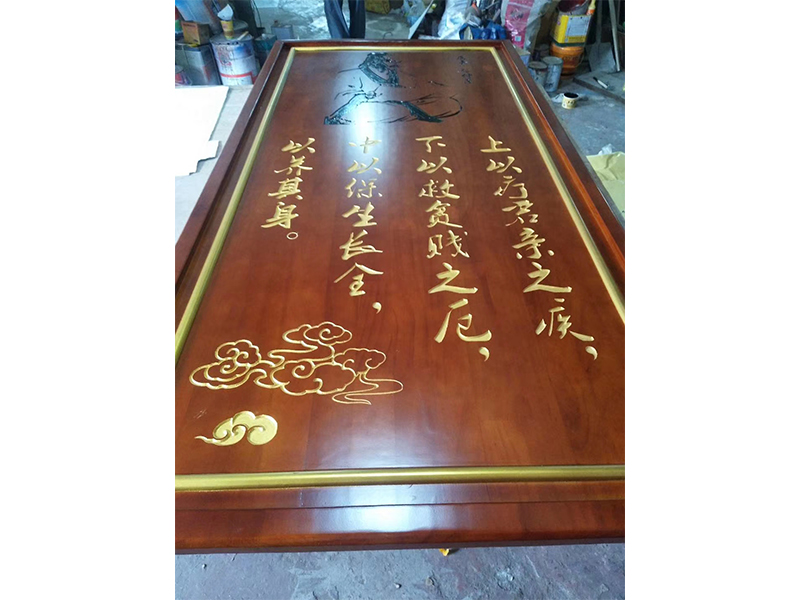 上以疗君亲之疾，
下以救贫贱之厄，
中以保生长全，
以养其身。